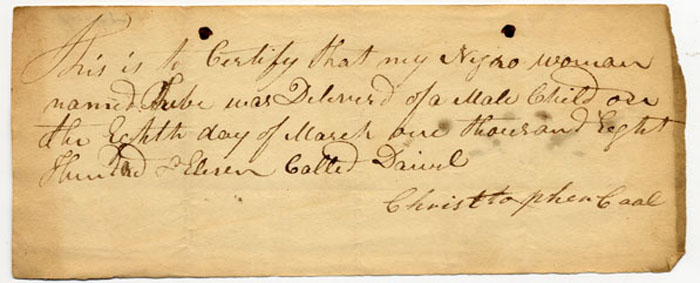 This is to Certify that my Negro woman
named Jube was Deliverd of a Male Child on
the Eighth day of March one thousand Eight
Hundred & Eleven Called Daniel
Christtopher Caal